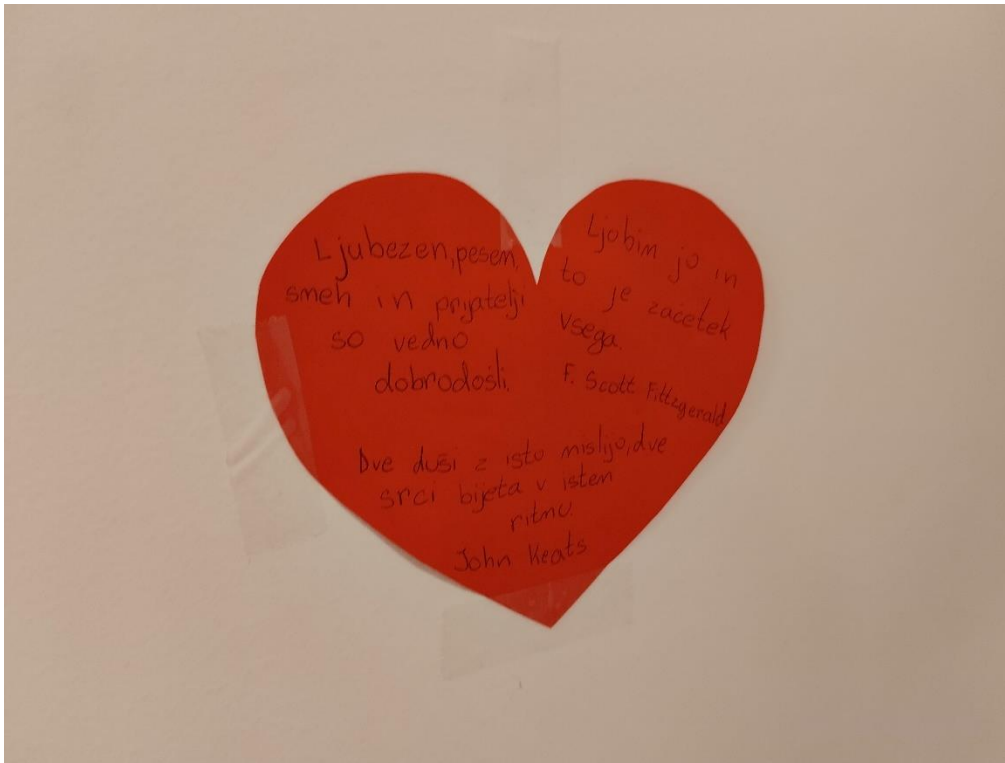 Ljubezen, pesem,
smeh in prijatelji
so vedno
dobrodošli.
Ljubim jo in
to je začetek
vsega.
F. Scott Fitzgerald
Dve duši z isto mislijo, dve
srci bijeta v istem
ritmu.
John Keats